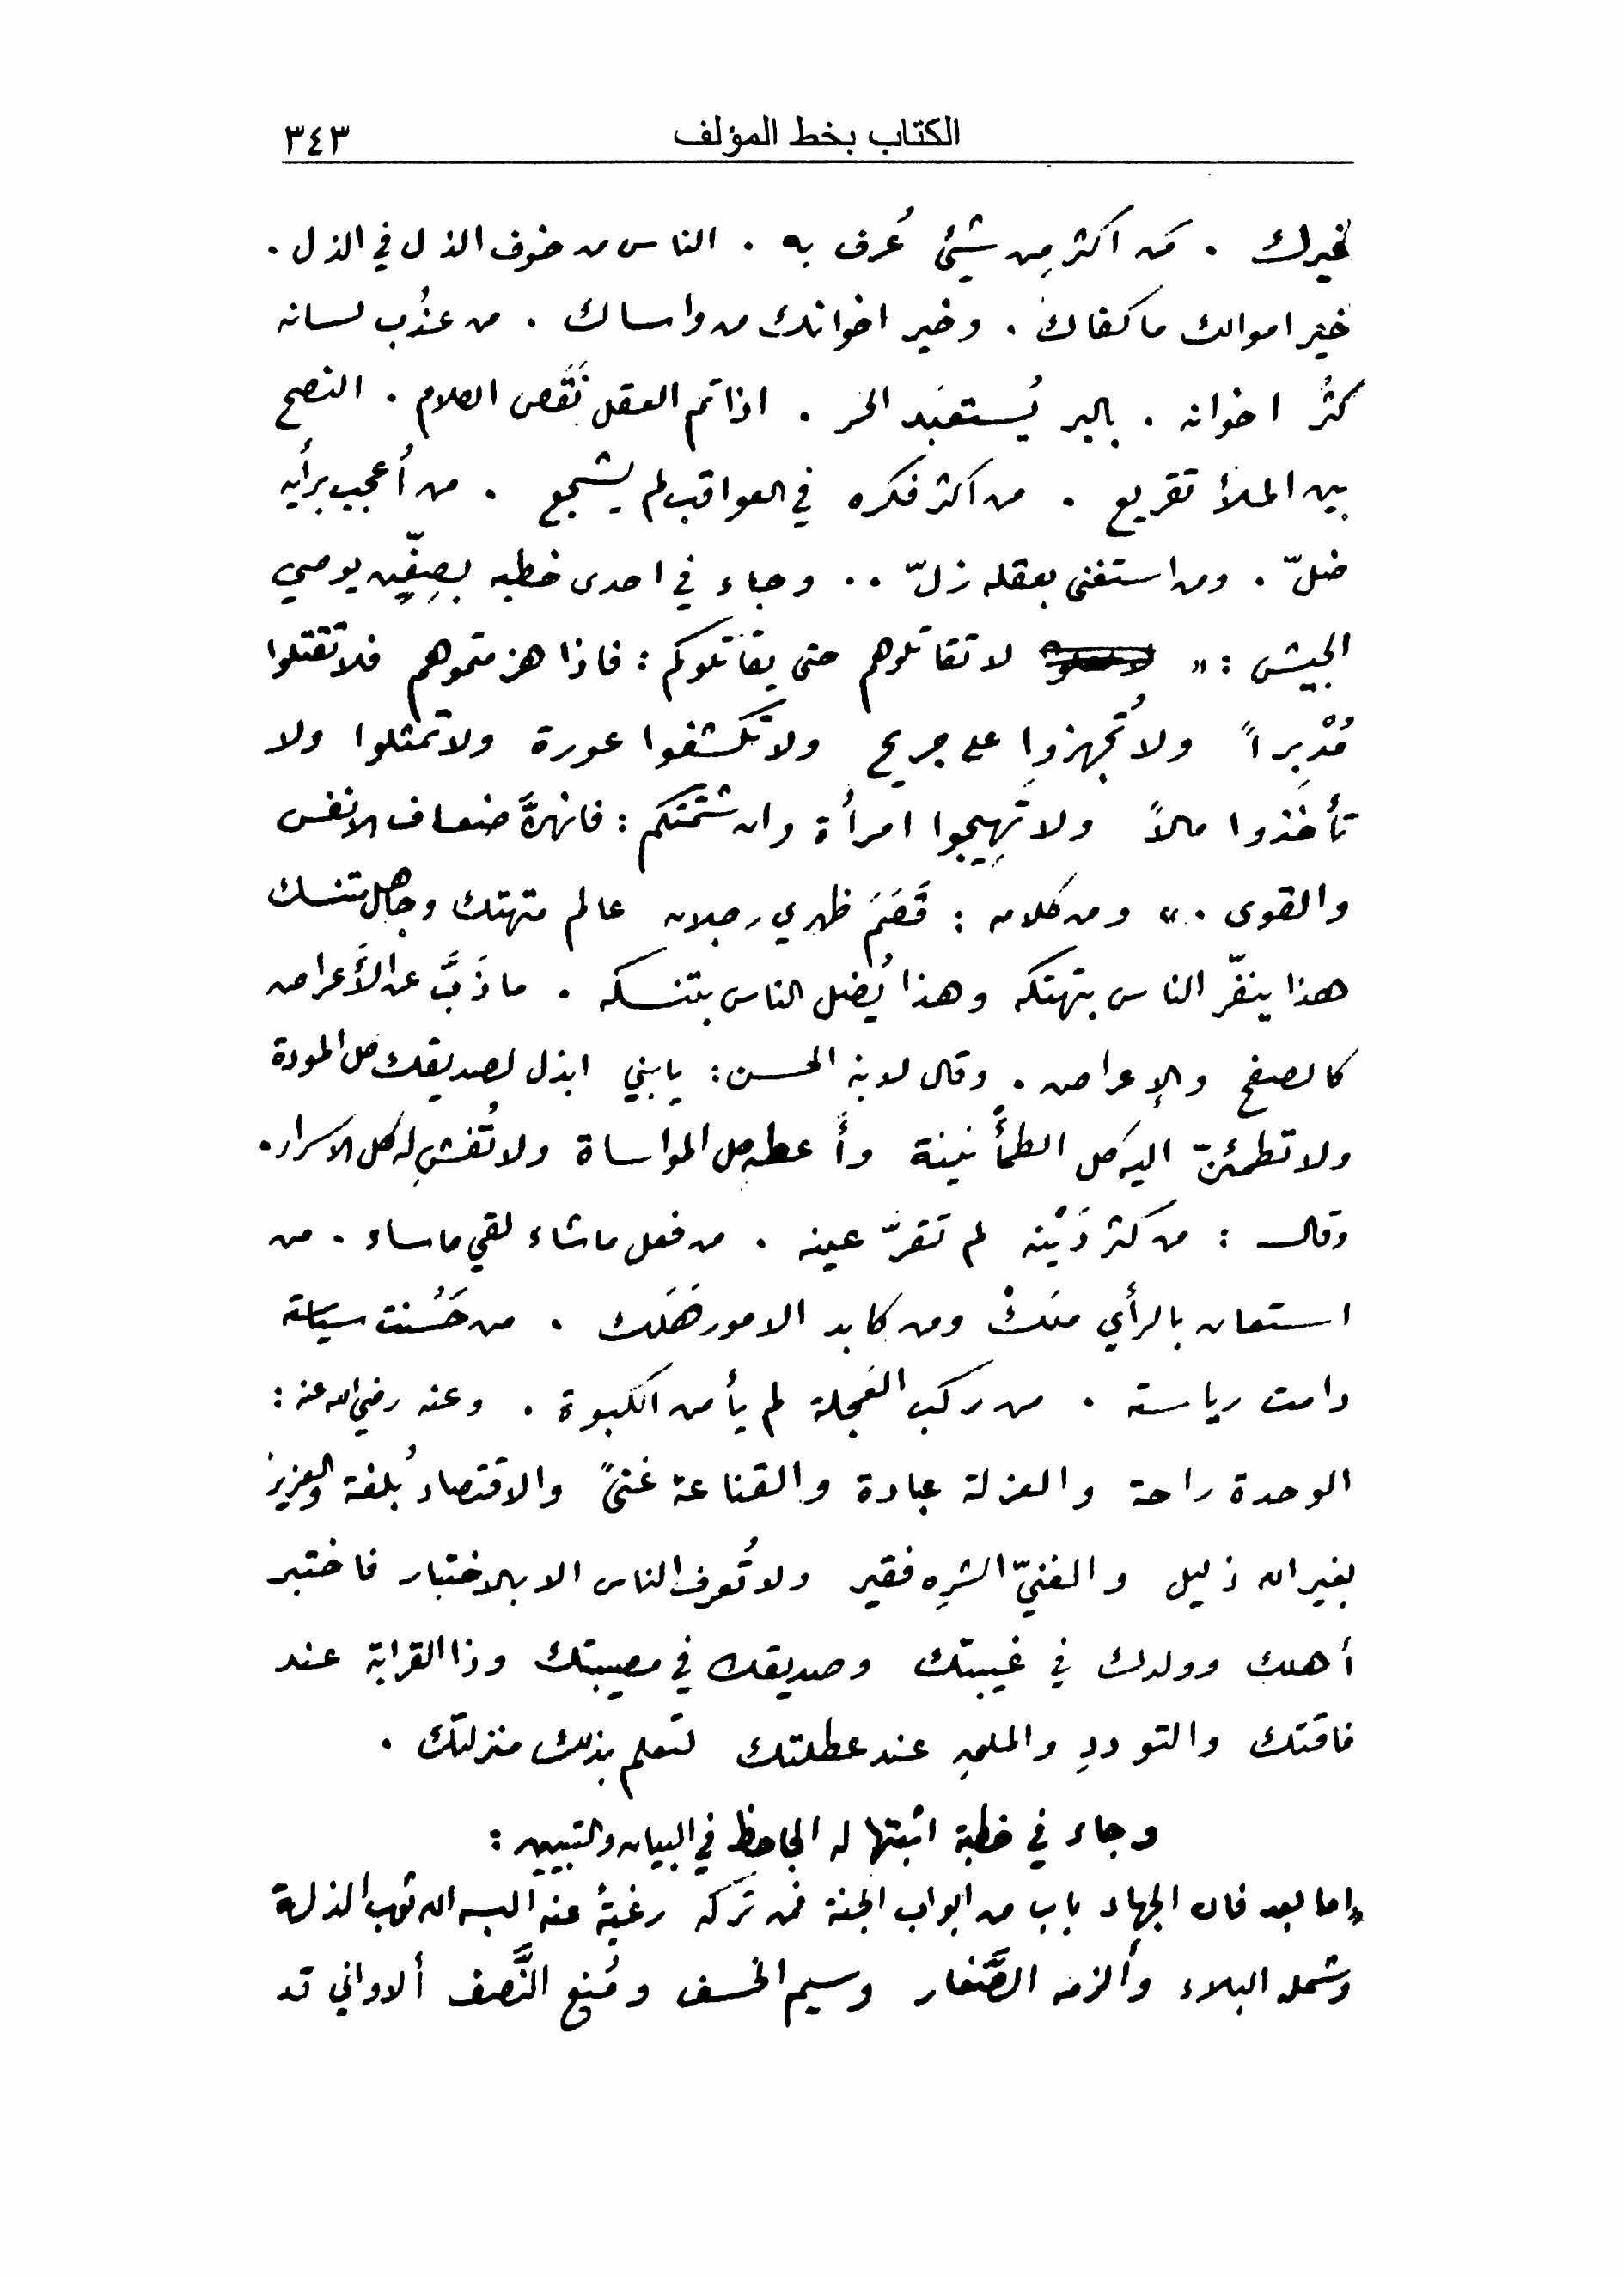 الكتاب بخط المؤلف ٣٤٣
لخيرك . مَن اكثر مِن شيئ عُرف به . الناس من خوف الذل في الذل .
خير اموالك ما كفاك . وخير اخوانك من واساك . من عذُب لسانه
كثُر اخوانه . بالبر يُستعبَد الحر . اذا تم العقل نَقَص الكلام . النصح
بين الملأ تقريع . من اكثر فكره في العواقب لم يشجع . من أُعجب برأيه
ضلّ . ومن استغنى بعقله زلّ .. وجاء في احدى خطبه بصِفّين يوصي
الجيش : " لا تقاتلوهم حتى يقاتلوكم : فاذا هزمتموهم فلا تقتلوا
مُدْبِراً ولا تُجهزوا على جريح ولا تكشفوا عورة ولا تمثلوا ولا
تأخذوا مالاً ولا تهيجوا امرأة وان شتمتكم : فانهنَّ ضعاف الانفس
والقوى . " ومن كلامه : قَصَمَ ظهري رجلان عالم متهتك وجاهل متنسك
هذا ينفّر الناس بتهتكه وهذا يُضل الناس بتنسكه . ما ذَبَّ عن الأَعراض
كالصفح والإعراض . وقال لابنه الحسن : يا بني ابذل لصديقك كل المودة
ولا تطمئنّ اليه كل الطمأنينة وأَعطه كل المواساة ولا تُفشِ له كل الاسرار .
وقال : من كثر دَيْنه لم تقرّ عينه . من فعل ما شاء لقي ما ساء . من
استعان بالرأي ملَكْ ومن كابد الامور هَلَك . من حَسُنت سياسته
دامت رياسته . من ركب العَجلة لم يأمن الكبوة . وعنه رضي الله عنه :
الوحدة راحة والعزلة عبادة والقناعة غنىً والاقتصاد بُلغة والعزيز
بغير الله ذليل والغنيّ الشرِه فقير ولا تُعرف الناس الا بالاختبار فاختبر
أهلك وولدك في غيبتك وصديقك في مصيبتك وذا القرابة عند
فاقتك والتوددِ والملقِ عند عطلتك لتعلم بذلك منزلتك .
وجاء في خطبة اثبتها له الجاحظ في البيان والتبيين :
" اما بعد فان الجهاد باب من ابواب الجنة فمن تركه رغبةً عنه البسه الله ثوب الذلة
وشمله البلاء وأُلزمه الصَّغار وسيم الخسف ومُنع النَّصف ألا واني قد